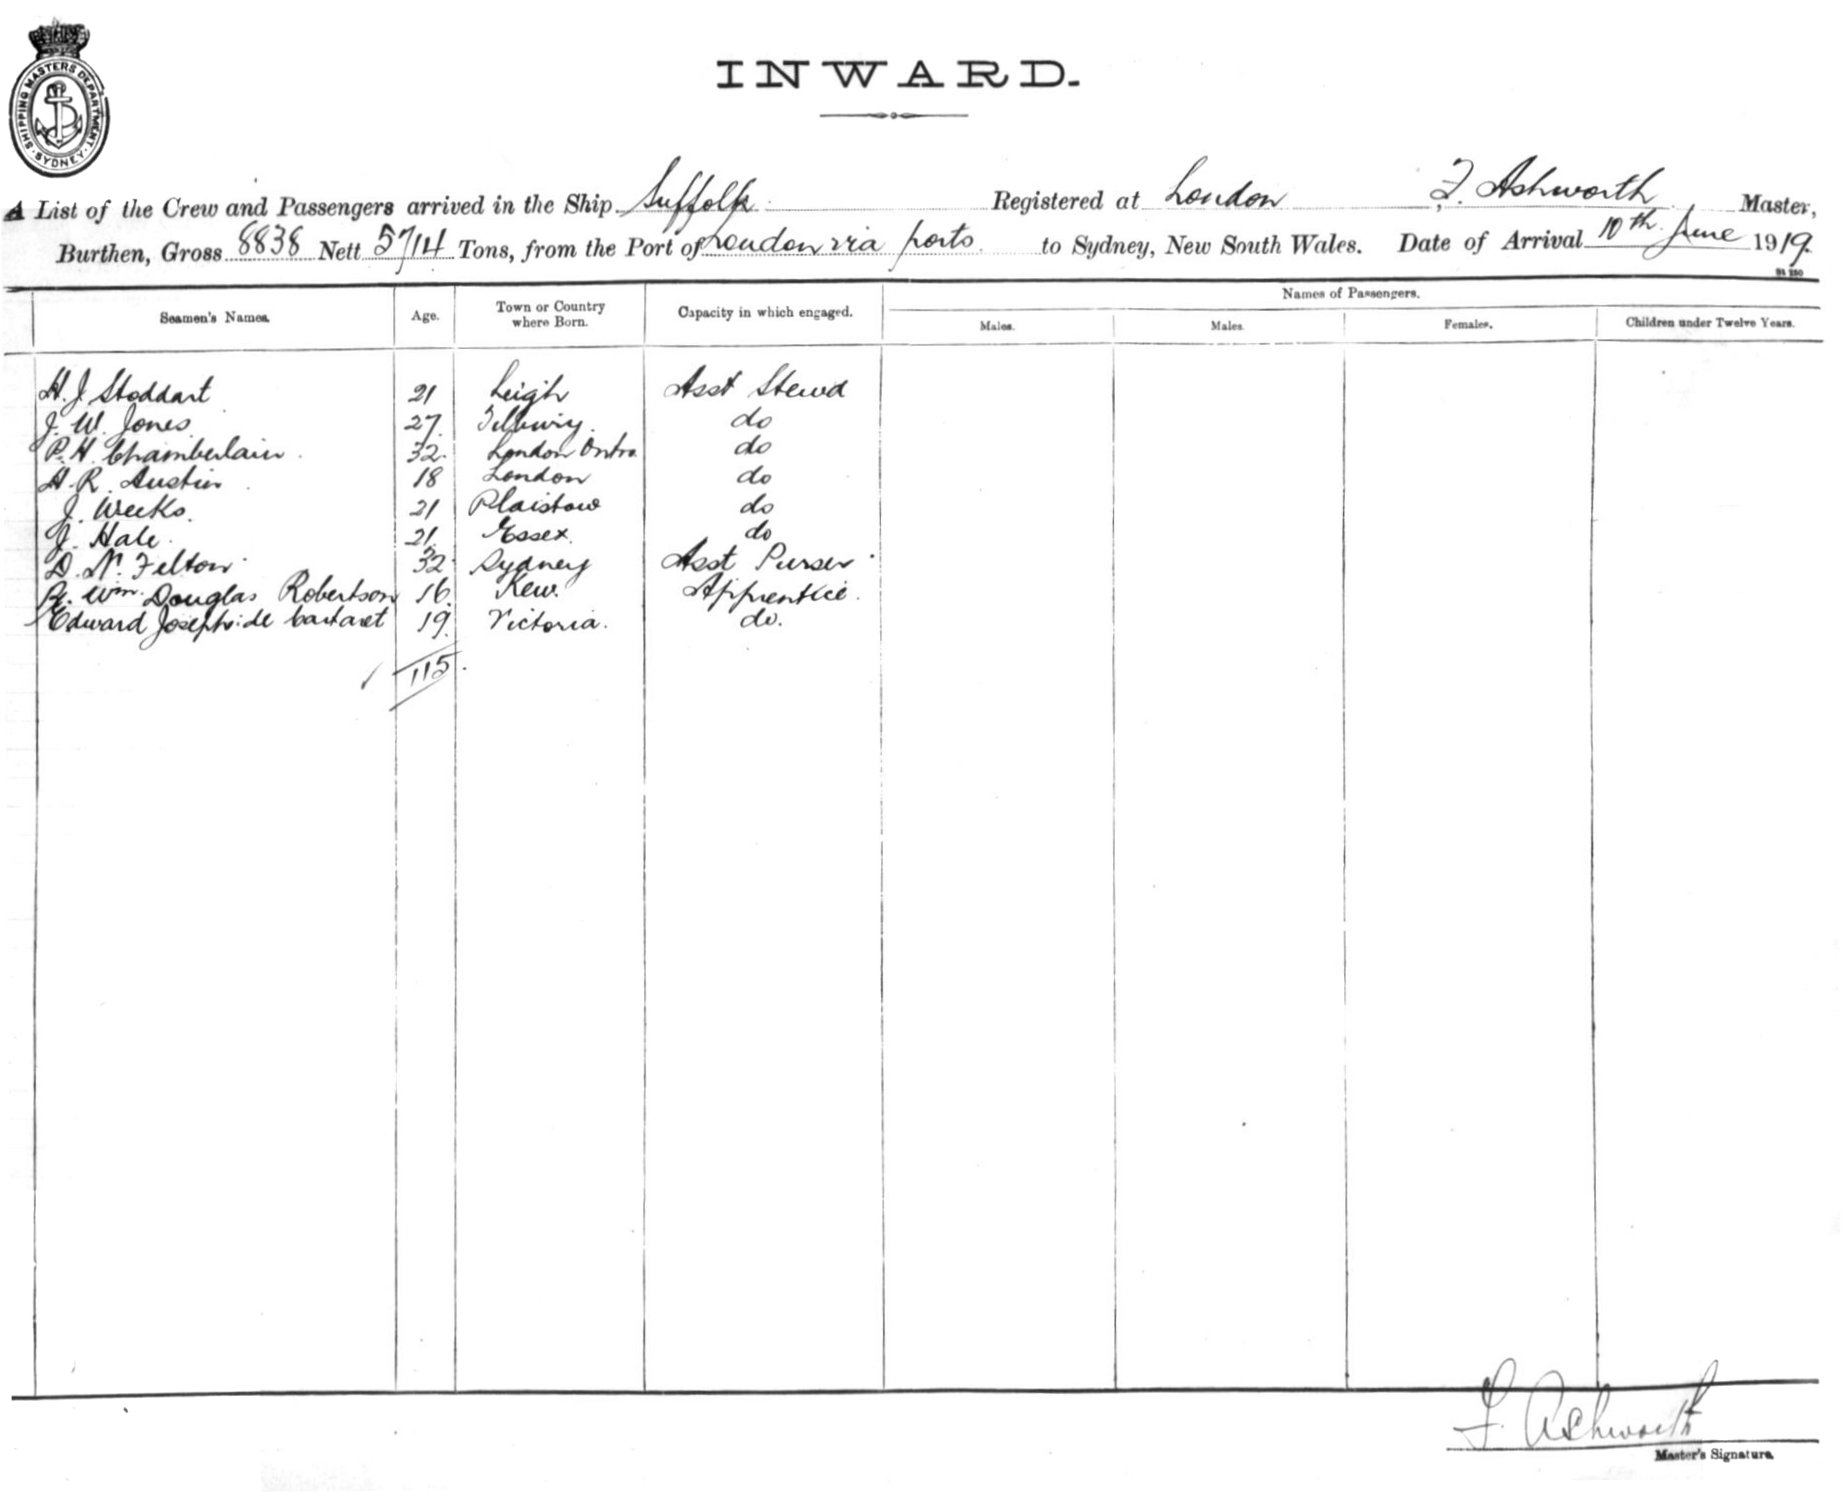 SHIPPING MASTERS DEPARTMENT. SYDNEY.
INWARD.
A List of the Crew and Passengers arrived in the Ship Suffolk Registered at London F. Ashworth Master,
Burthen, Gross 8838 Nett 5714 Tons, from the Port of London via ports to Sydney, New South Wales. Date of Arrival 10th June 1919.
Seamen's Names. Age. Town or Country where Born. Capacity in which engaged. Names of Passengers.
Males. Males. Females. Children under Twelve Years.
H. J. Stoddart 21 Leigh Asst Stewd
J. W. Jones 27 Tilbury. do
P. H. Chamberlain 32. London Ontro. do
H. R. Austin 18 London do
J. Weeks. 21 Plaistow do
J. Hale. 21. Essex. do
D. N. Felton. 32. Sydney Asst Purser
R. Wm. Douglas Robertson 16. Kew. Apprentice.
Edward Joseph de Carteret 19. Victoria. do.
115.
F. Ashworth
Master's Signature.